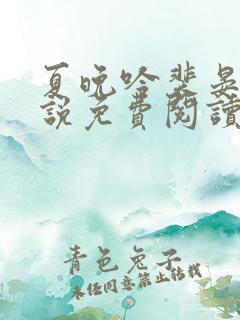 夏晚吟裴晏
說免費閱讀
青色兔子
未经同意禁止转载